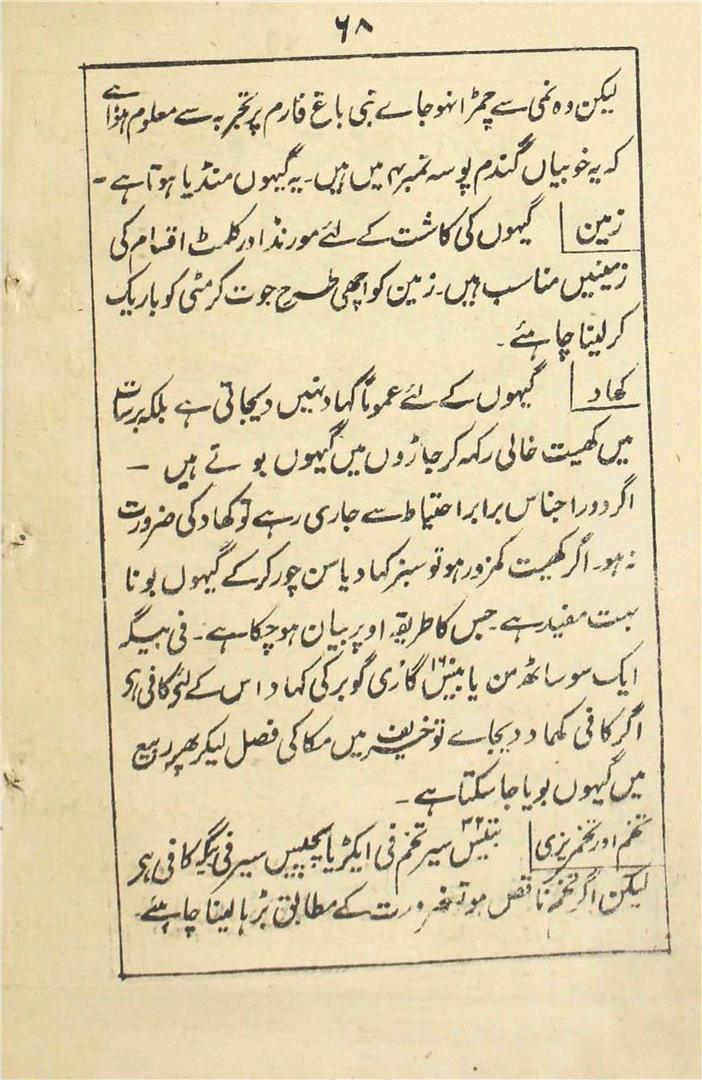 ۶۸
لیکن وہ نمی سے چمڑا نہو جاے نبی باغ فارم پر تجربہ سے معلوم ہوا ہے
کہ یہ خوبیاں گندم پوسہ نمبر ۴ میں ہیں۔ یہ گیہوں منڈیا ہوتا ہے۔
زمین گیہوں کی کاشت کے لئے مور نڈ اور کلمٹ اقسام کی
زمینیں مناسب ہیں۔ زمین کو اچھی طرح جوت کر مٹی کو باریک
کر لینا چاہئے۔
کھاد گیہوں کے لئے عموماً کہاد نہیں دیجاتی ہے بلکہ برسات
میں کھیت خالی رکہہ کر جاڑوں میں گیہوں بوتے ہیں ۔
اگر دور اجناس برابر احتیاط سے جاری رہے تو کھاد کی ضرورت
نہ ہو۔ اگر کھیت کمزور ہو تو سبز کہاد یا سن چور کر کے گیہوں بونا
بہت مفید ہے۔ جس کا طریقہ اوپر بیان ہو چکا ہے۔ فی بیگہ
ایک سو ساٹھ من یا گاڑی گوبر کی کہاد اس کے لئے کافی ہی
اگر کافی کھاد دیجاے تو خریف میں مکا کی فصل لیکر پھر ربیع
میں گیہوں بویا جا سکتا ہے۔
تخم اور تخمریزی بتیس ۳۲ سیر تخم فی ایکڑ یا پچیس سیر فی بیگہ کافی ہی
لیکن اگر تخم ناقص ہو تو ضرورت کے مطابق بڑہا لینا چاہئے۔